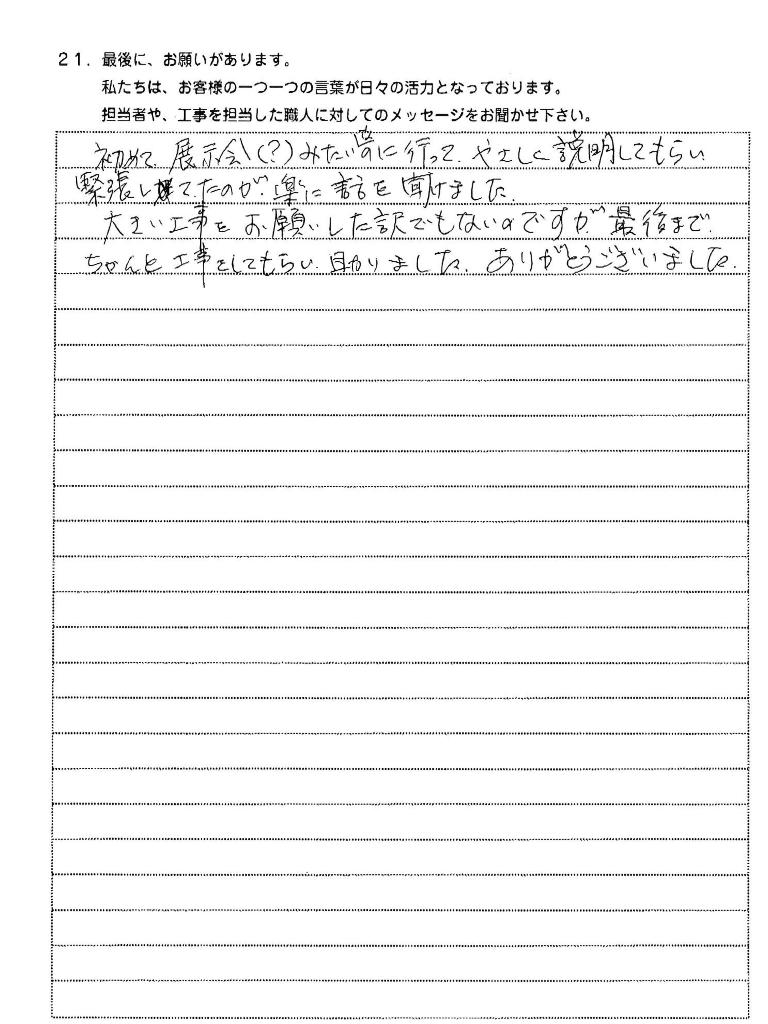 21．最後に、お願いがあります。
私たちは、お客様の一つ一つの言葉が日々の活力となっております。
担当者や、工事を担当した職人に対してのメッセージをお聞かせ下さい。
初めて、展示会(?)みたいなのに行って、やさしく説明してもらい
緊張してたのが、楽に話を聞けました。
大きい工事をお願いした訳でもないのですが、最後まで、
ちゃんと工事をしてもらい、助かりました。ありがとうございました。